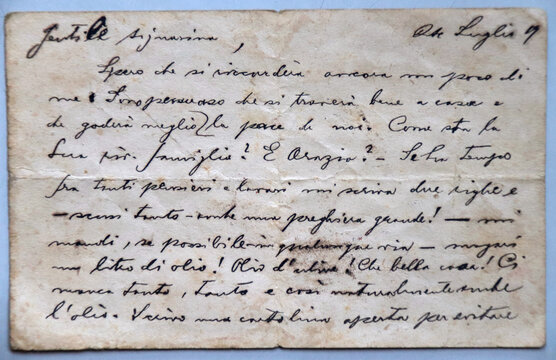 Gentile signorina, Luglio
Spero che si ricorderà ancora un poco di
me. Son persuaso che si troverà bene a casa e
che goderà meglio la pace di noi. Come sta la
Sua famiglia? E Orazio? - Se ha tempo
fra tanti pensieri e lavori mi scriva due righe e
- scusi tanto - anche una preghiera grande! - mi
mandi, se possibile in qualunque via - magari
un litro di olio! Olio d'oliva! Che bella cosa! Ci
manca tanto, tanto e così naturalmente anche
l'olio. una cartolina aperta per evitare